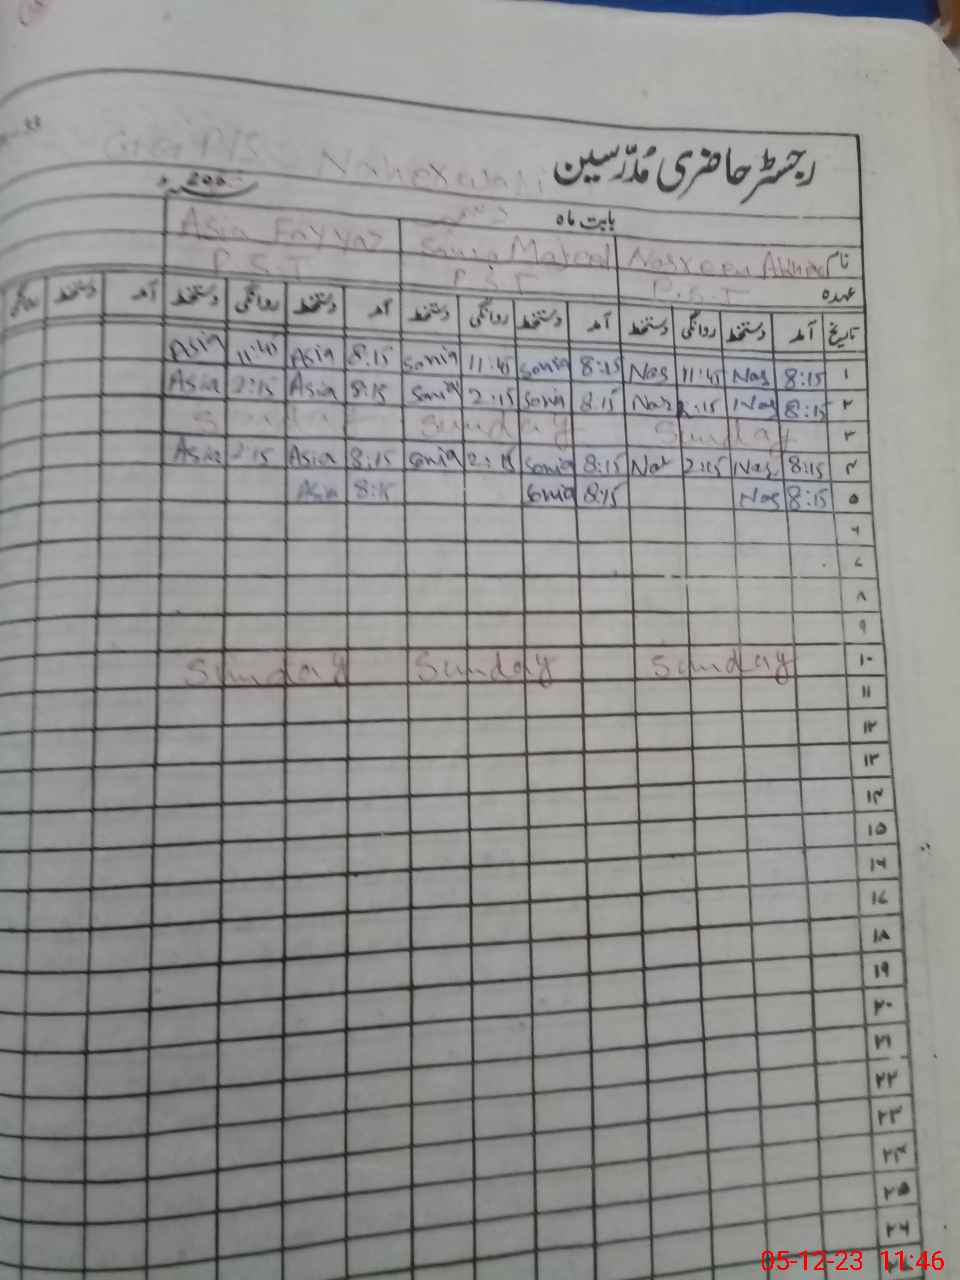 رجسٹر حاضری مُدرّسین
بابت ماہ
200
نام Nasreen Sonia Asia Fayyaz
عہدہ P.S.T P.S.T P.S.T
تاریخ آمد دستخط روانگی دستخط آمد دستخط روانگی دستخط آمد دستخط روانگی دستخط آمد دستخط روانگی
۱ 8:15 Nas 11:45 Nas 8:15 Sonia 11:45 Sonia 8:15 Asia 11:45 Asia
۲ 8:15 Nas 2:15 Nas 8:15 Sonia 2:15 Sonia 8:15 Asia 2:15 Asia
۳ Sunday Sunday Sunday
۴ 8:15 Nas 2:15 Nas 8:15 Sonia 2:15 Sonia 8:15 Asia 2:15 Asia
۵ 8:15 Nas 8:15 Sonia 8:15 Asia
۶
۷
۸
۹
۱۰ Sunday Sunday Sunday
۱۱
۱۲
۱۳
۱۴
۱۵
۱۶
۱۷
۱۸
۱۹
۲۰
۲۱
۲۲
۲۳
۲۴
۲۵
۲۶
05-12-23 11:46